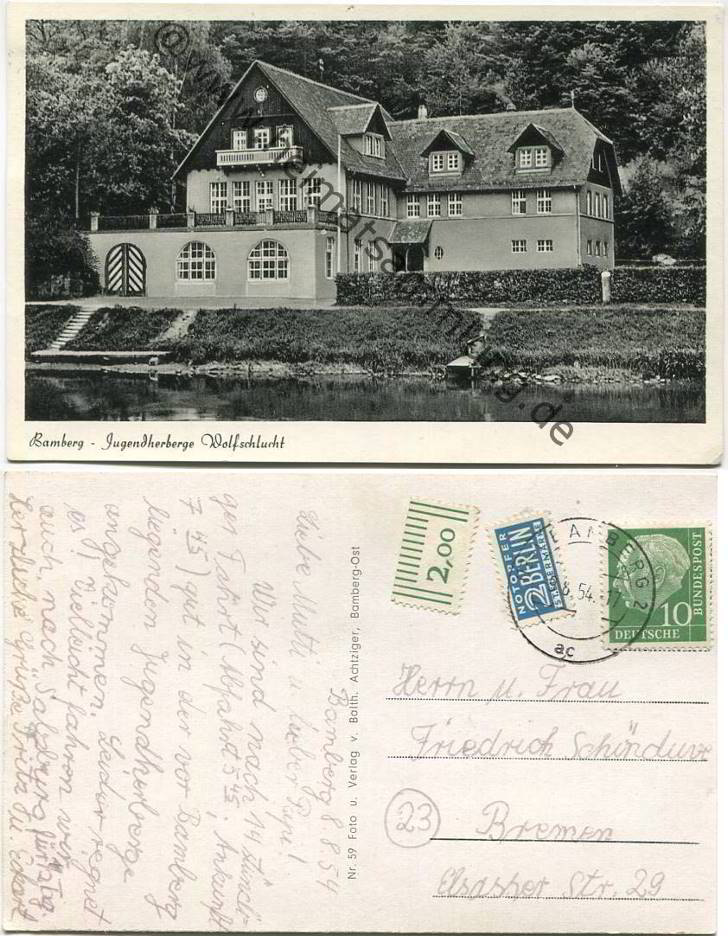 © www.heimatsammlung.de
Bamberg - Jugendherberge Wolfschlucht
2,00
NOTOPFER
2 BERLIN
STEUERMARKE
BAMBERG 2
8.8.54.-17
ac
10
DEUTSCHE
BUNDESPOST
Bamberg 8.8.54
Liebe Mutti u. lieber Papi!
Wir sind nach 14 stündi-
ger Fahrt (Abfahrt 5 45, Ankunft
7 45) gut in der vor Bamberg
liegenden Jugendherberge
angekommen. Leider regnet
es. Vielleicht fahren wir
auch nach Salzburg für 1 Tg.
Herzliche Grüße Fritz
Nr. 59 Foto u. Verlag v. Balth. Achtziger, Bamberg-Ost
Herrn u. Frau
Friedrich
23 Bremen
Elsasher Str. 29